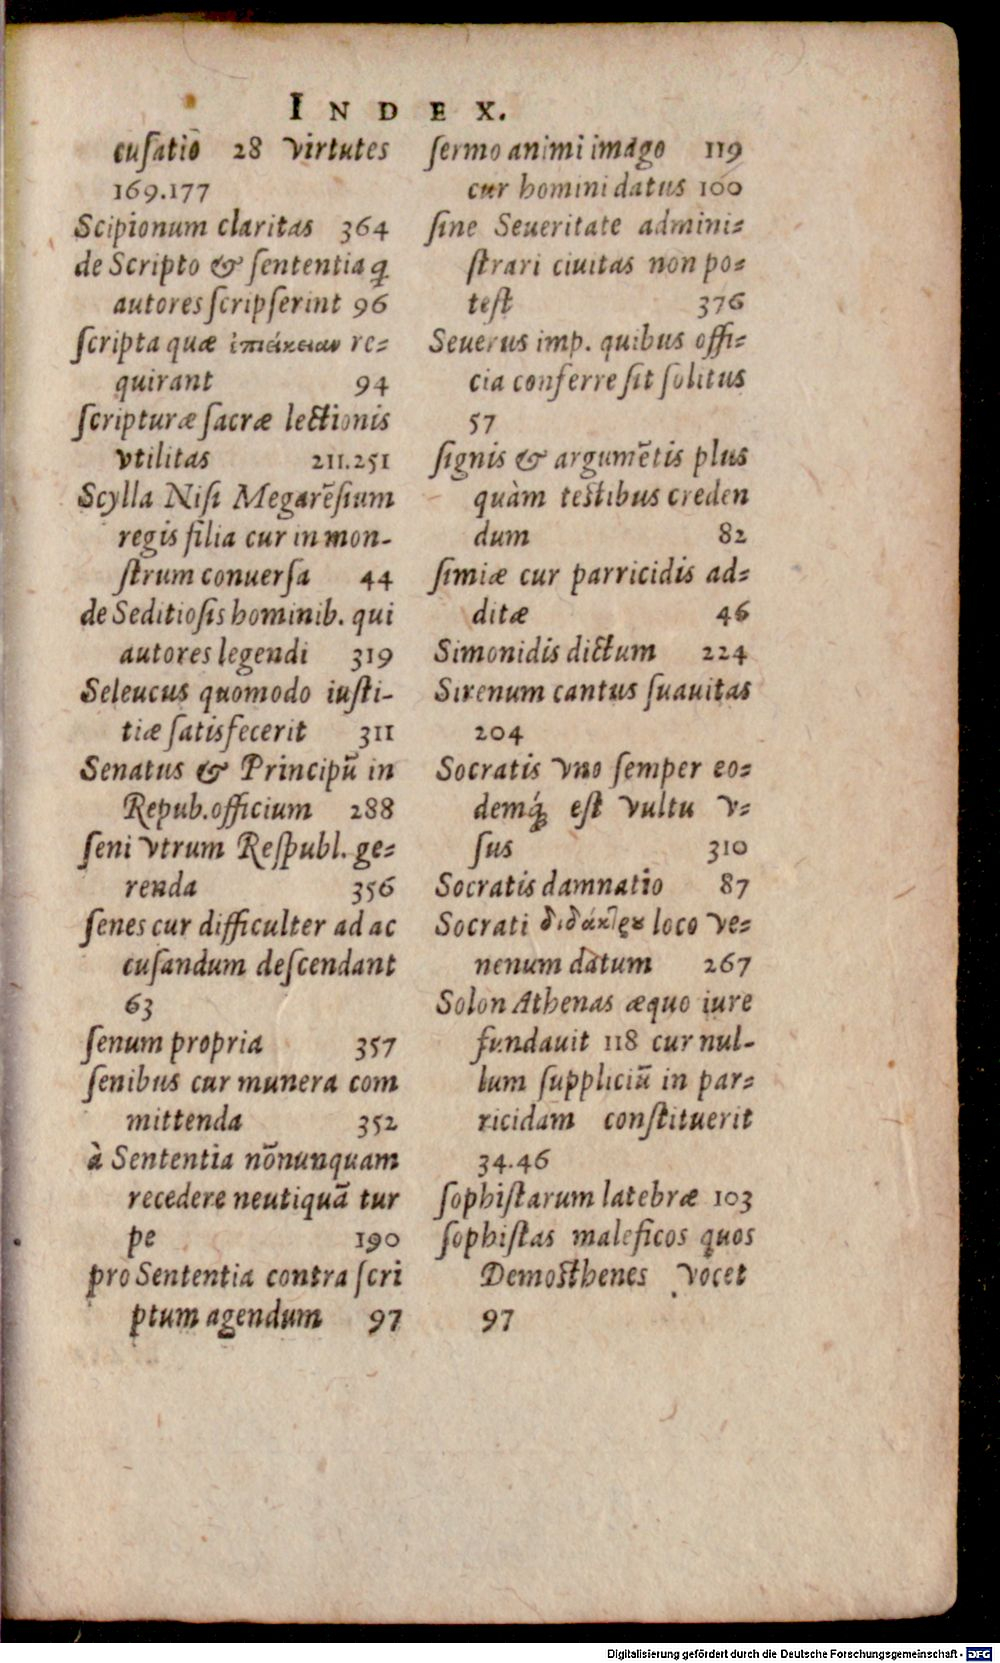 INDEX.
cuſatiō 28 virtutes
169.177
Scipionum claritas 364
de Scripto & ſententia q̃
autores ſcripſerint 96
ſcripta quæ ἐπιείκειαν re=
quirant 94
ſcripturæ ſacræ lectionis
vtilitas 211.251
Scylla Niſi Megarēſium
regis filia cur in mon-
ſtrum conuerſa 44
de Seditioſis hominib. qui
autores legendi 319
Seleucus quomodo iuſti-
tiæ ſatisfecerit 311
Senatus & Principū in
Repub. officium 288
ſeni vtrum Reſpubl. ge=
renda 356
ſenes cur difficulter ad ac
cuſandum deſcendant
63
ſenum propria 357
ſenibus cur munera com
mittenda 352
à Sententia nōnunquam
recedere neutiquā tur
pe 190
pro Sententia contra ſcri
ptum agendum 97
ſermo animi imago 119
cur homini datus 100
ſine Seueritate admini=
ſtrari ciuitas non po=
teſt 376
Seuerus imp. quibus offi=
cia conferre ſit ſolitus
57
ſignis & argumētis plus
quàm teſtibus creden
dum 82
ſimiæ cur parricidis ad=
ditæ 46
Simonidis dictum 224
Sirenum cantus ſuauitas
204
Socratis vno ſemper eo=
demq́; eſt vultu v=
ſus 310
Socratis damnatio 87
Socrati loco ve=
nenum datum 267
Solon Athenas æquo iure
fundauit 118 cur nul-
lum ſuppliciū in par=
ricidam conſtituerit
34.46
ſophiſtarum latebræ 103
ſophiſtas maleficos quos
Demoſthenes vocet
97
Digitalisierung gefördert durch die Deutsche Forschungsgemeinschaft - DFG